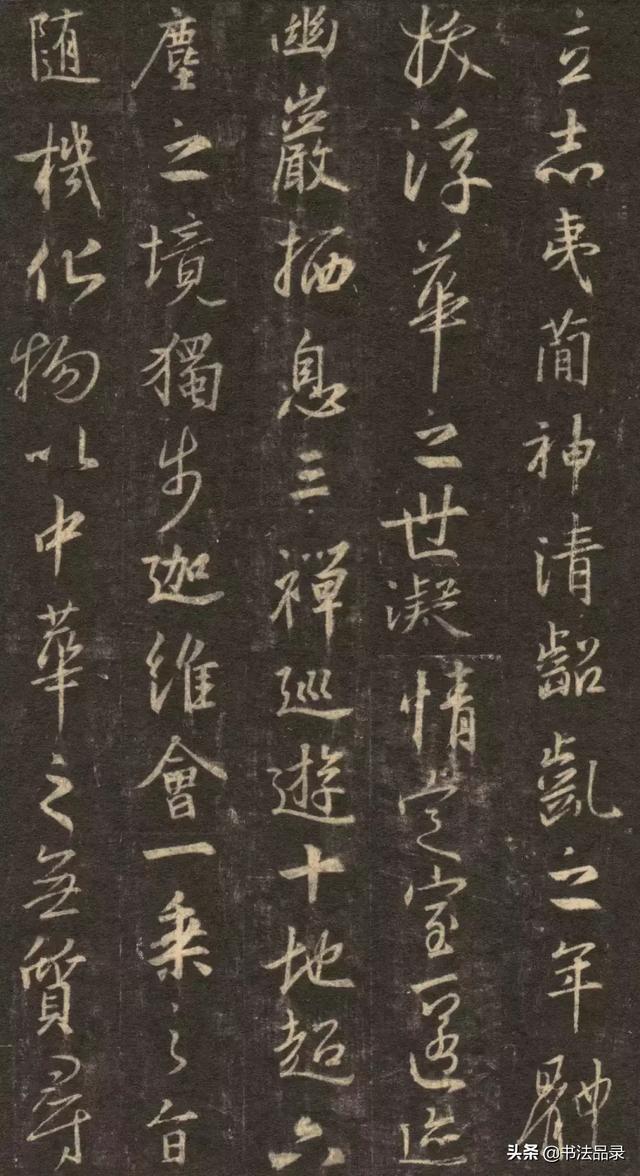 立志夷蕳神清齠齓之年體
拔浮華之世凝情定室匿迹
幽巖栖息三禪巡遊十地超六
塵之境獨步迦維會一乘之旨
随機化物以中華之無質尋
头条@书法品录